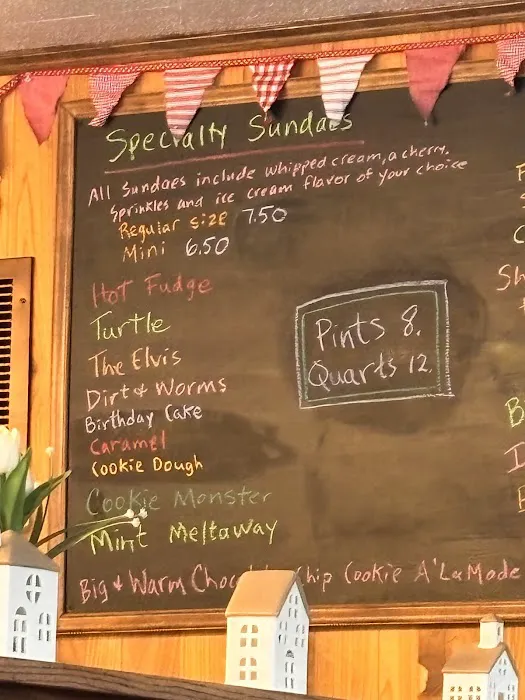 Specialty Sundaes
All Sundaes include whipped cream, a cherry,
Sprinkles and ice cream flavor of your choice
Regular size 7.50
Mini 6.50
Hot Fudge
Turtle
The Elvis
Dirt & Worms
Birthday Cake
Caramel
Cookie Dough
Cookie Monster
Mint Meltaway
Big & Warm Chocolate Chip Cookie A'LaMode
Pints 8.
Quarts 12.